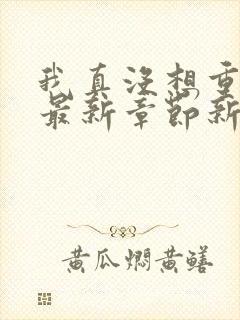 我真没想重
最新章节新
黄瓜焖黄鳝